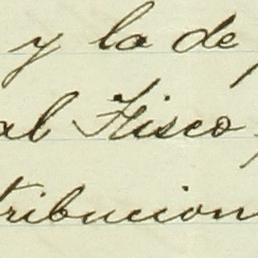 y la de
al Fisco
tribucion